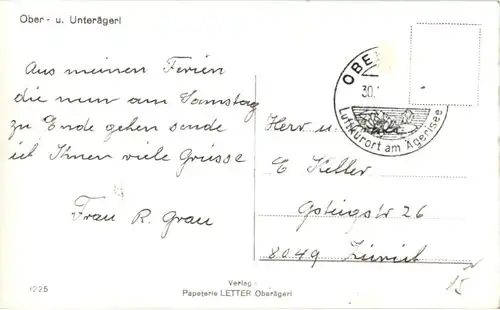 Ober- u. Unterägeri
Aus meinen Ferien
die nun am Samstag
zu Ende gehen sende
ich Ihnen viele Grüsse
Frau R. Grau
OBE
30.
Luftkurort am Ägerisee
Herr u.
E Keller
26
8049 Zürich
Verlag
Papeterie LETTER Oberägeri
1225